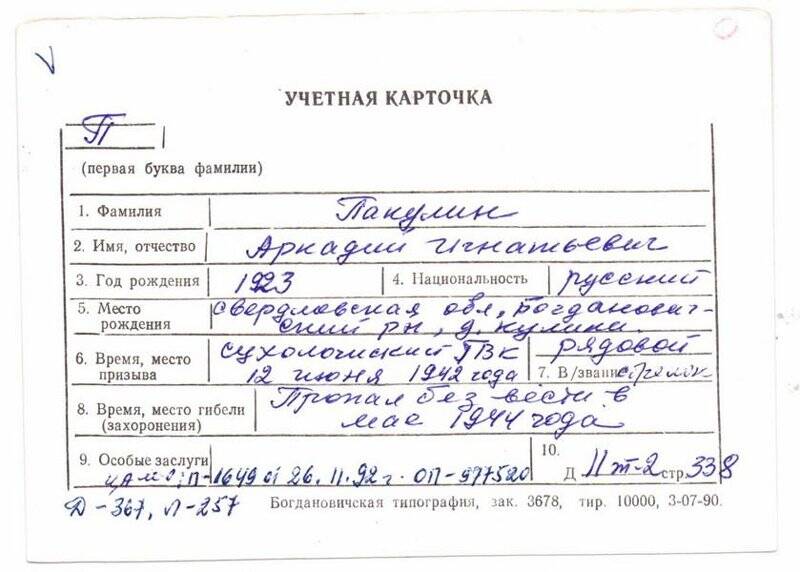 УЧЕТНАЯ КАРТОЧКА
П
(первая буква фамилии)
1. Фамилия Пакулин
2. Имя, отчество Аркадий Игнатьевич
3. Год рождения 1923 4. Национальность русский
5. Место рождения свердловская обл, Богданович-
ский рн, д. кулики.
6. Время, место призыва сухоложский ГВК
12 июня 1942 года
7. В/звание рядовой
стрелок
8. Время, место гибели (захоронения) Пропал без вести в
мае 1944 года
9. Особые заслуги
ЦАМО: П-1649 от 26.11.92г. ОП-977520
10. Д 11 т-2 стр. 338
Д-367, Л-257
Богдановичская типография, зак. 3678, тир. 10000, 3-07-90.